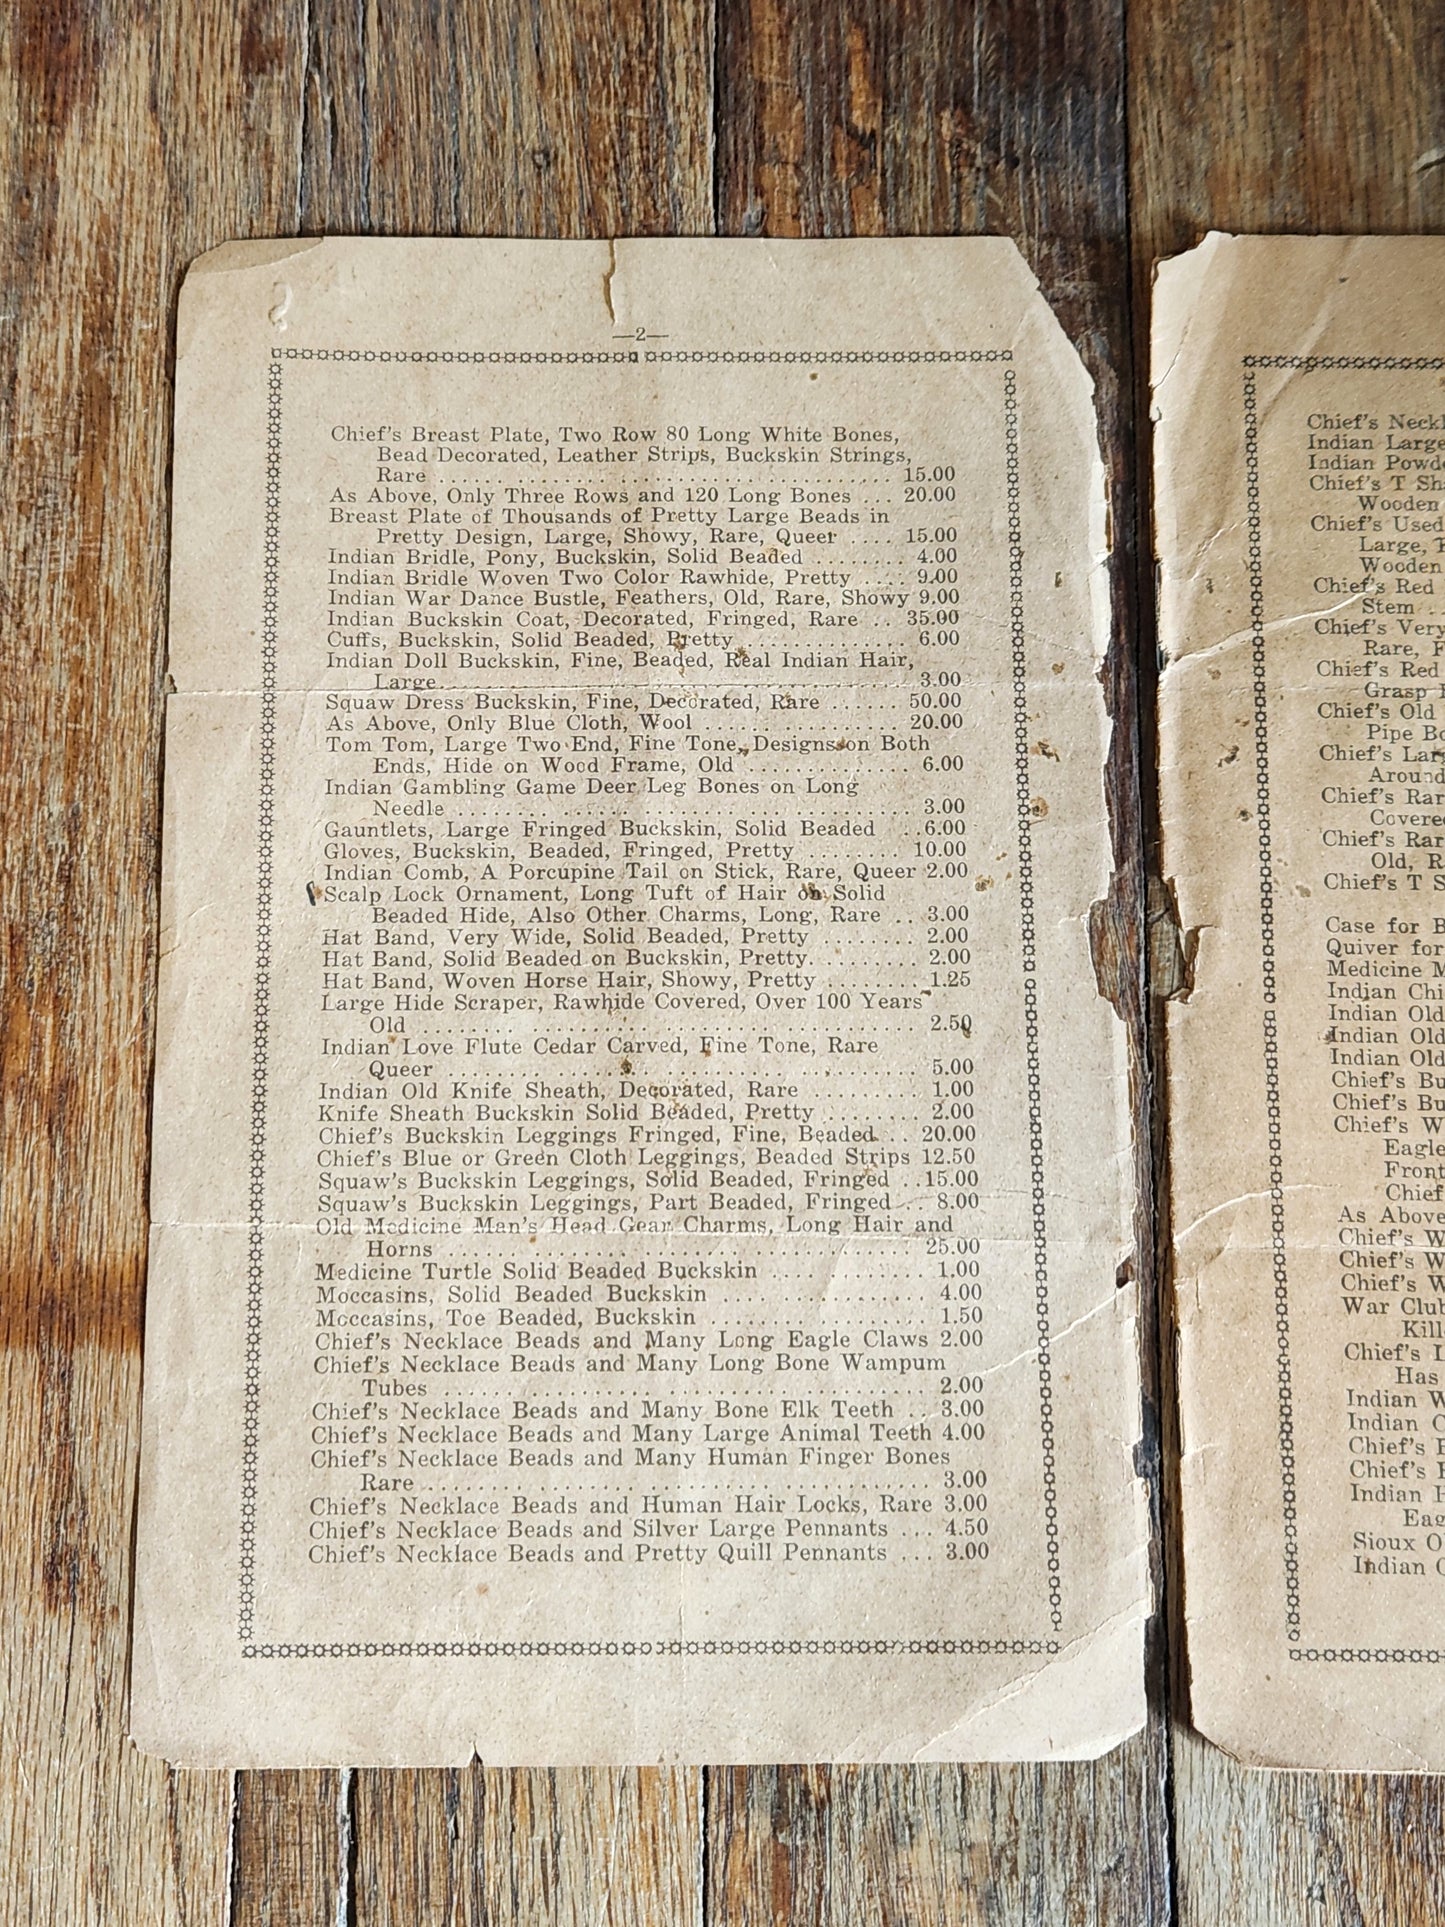 —2—
Chief's Breast Plate, Two Row 80 Long White Bones,
Bead Decorated, Leather Strips, Buckskin Strings,
Rare ........................................ 15.00
As Above, Only Three Rows and 120 Long Bones ... 20.00
Breast Plate of Thousands of Pretty Large Beads in
Pretty Design, Large, Showy, Rare, Queer .... 15.00
Indian Bridle, Pony, Buckskin, Solid Beaded ........ 4.00
Indian Bridle Woven Two Color Rawhide, Pretty .... 9.00
Indian War Dance Bustle, Feathers, Old, Rare, Showy 9.00
Indian Buckskin Coat, Decorated, Fringed, Rare .. 35.00
Cuffs, Buckskin, Solid Beaded, Pretty .............. 6.00
Indian Doll Buckskin, Fine, Beaded, Real Indian Hair,
Large........................................ 3.00
Squaw Dress Buckskin, Fine, Decorated, Rare ...... 50.00
As Above, Only Blue Cloth, Wool .................. 20.00
Tom Tom, Large Two End, Fine Tone, Designs on Both
Ends, Hide on Wood Frame, Old .............. 6.00
Indian Gambling Game Deer Leg Bones on Long
Needle ...................................... 3.00
Gauntlets, Large Fringed Buckskin, Solid Beaded ..6.00
Gloves, Buckskin, Beaded, Fringed, Pretty ........ 10.00
Indian Comb, A Porcupine Tail on Stick, Rare, Queer 2.00
Scalp Lock Ornament, Long Tuft of Hair on Solid
Beaded Hide, Also Other Charms, Long, Rare .. 3.00
Hat Band, Very Wide, Solid Beaded, Pretty ........ 2.00
Hat Band, Solid Beaded on Buckskin, Pretty......... 2.00
Hat Band, Woven Horse Hair, Showy, Pretty ........ 1.25
Large Hide Scraper, Rawhide Covered, Over 100 Years
Old ........................................ 2.50
Indian Love Flute Cedar Carved, Fine Tone, Rare
Queer ...................................... 5.00
Indian Old Knife Sheath, Decorated, Rare ......... 1.00
Knife Sheath Buckskin Solid Beaded, Pretty ........ 2.00
Chief's Buckskin Leggings Fringed, Fine, Beaded... 20.00
Chief's Blue or Green Cloth Leggings, Beaded Strips 12.50
Squaw's Buckskin Leggings, Solid Beaded, Fringed ..15.00
Squaw's Buckskin Leggings, Part Beaded, Fringed .. 8.00
Old Medicine Man's Head Gear Charms, Long Hair and
Horns ...................................... 25.00
Medicine Turtle Solid Beaded Buckskin ............ 1.00
Moccasins, Solid Beaded Buckskin ................ 4.00
Moccasins, Toe Beaded, Buckskin .................. 1.50
Chief's Necklace Beads and Many Long Eagle Claws 2.00
Chief's Necklace Beads and Many Long Bone Wampum
Tubes ...................................... 2.00
Chief's Necklace Beads and Many Bone Elk Teeth .. 3.00
Chief's Necklace Beads and Many Large Animal Teeth 4.00
Chief's Necklace Beads and Many Human Finger Bones
Rare ........................................ 3.00
Chief's Necklace Beads and Human Hair Locks, Rare 3.00
Chief's Necklace Beads and Silver Large Pennants ... 4.50
Chief's Necklace Beads and Pretty Quill Pennants ... 3.00
Chief's
Indian Large
Indian
Chief's T
Wooden
Chief's Used
Large,
Wooden
Chief's Red
Stem ..
Chief's Very
Rare,
Chief's Red
Grasp
Chief's Old
Pipe
Chief's
Around
Chief's
Covered
Chief's
Old,
Chief's T
Case for
Quiver for
Medicine
Indian
Indian Old
Indian Old
Indian Old
Chief's
Chief's
Chief's
Eagle
Front
Chief
As Above
Chief's
Chief's
Chief's
War Club
Kill
Chief's
Has
Indian
Indian
Chief's
Chief's
Indian
Sioux
Indian